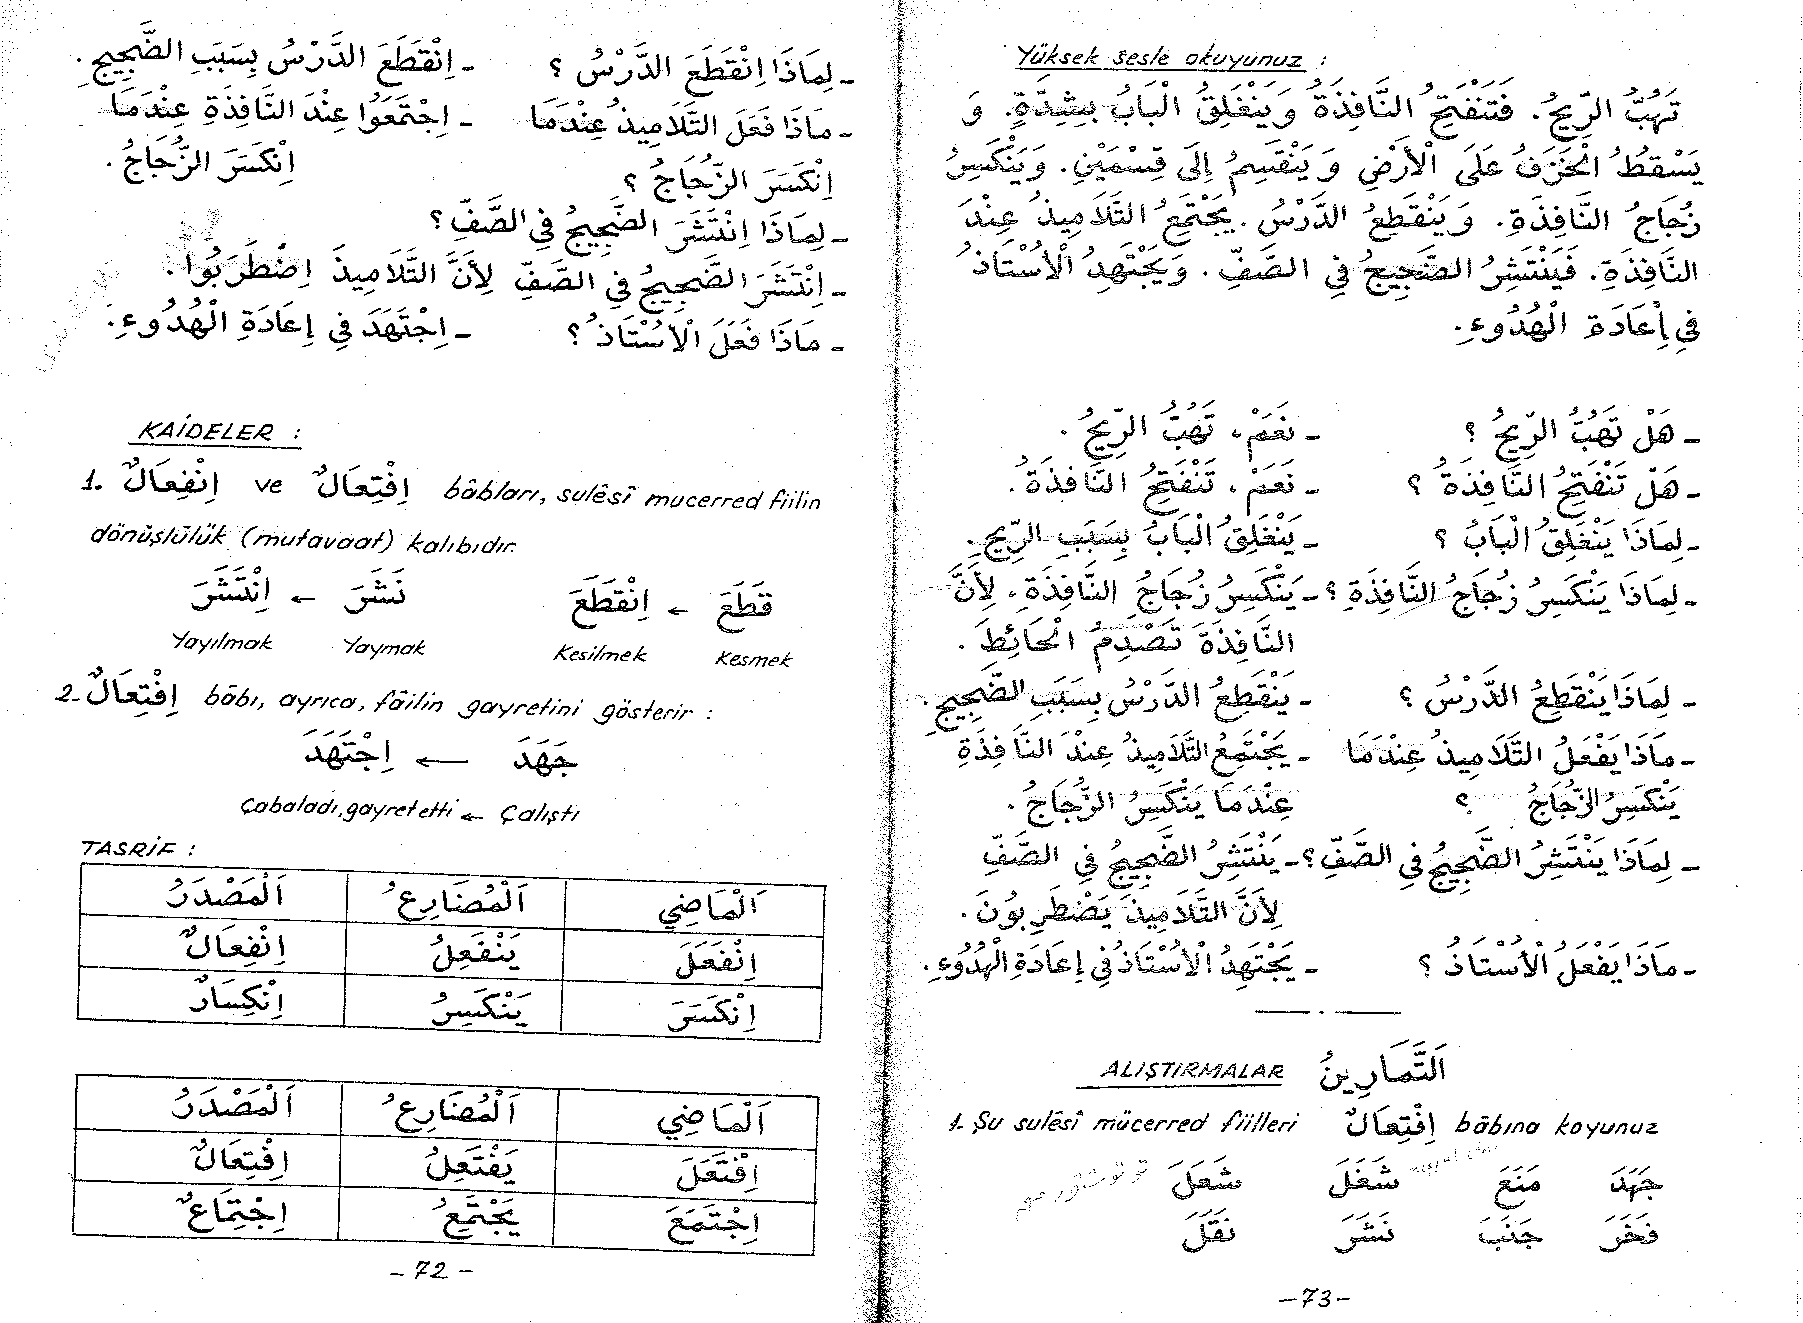 - لِمَاذَا اِنْقَطَعَ الدَّرْسُ ؟ - اِنْقَطَعَ الدَّرْسُ بِسَبَبِ الضَّجِيجِ.
- مَاذَا فَعَلَ التَّلَامِيذُ عِنْدَمَا - اِجْتَمَعُوا عِنْدَ النَّافِذَةِ عِنْدَمَا
اِنْكَسَرَ الزُّجَاجُ ؟ اِنْكَسَرَ الزُّجَاجُ.
- لِمَاذَا اِنْتَشَرَ الضَّجِيجُ فِي الصَّفِّ ؟
- اِنْتَشَرَ الضَّجِيجُ فِي الصَّفِّ لِأَنَّ التَّلَامِيذَ اِضْطَرَبُوا.
- مَاذَا فَعَلَ الْأُسْتَاذُ ؟ - اِجْتَهَدَ فِي إِعَادَةِ الْهُدُوءِ.
KAİDELER :
1. اِنْفِعَالٌ ve اِفْتِعَالٌ bâbları, sulêsî mucerred fiilin
dönüşlülük (mutavaat) kalıbıdır.
قَطَعَ ← اِنْقَطَعَ نَشَرَ ← اِنْتَشَرَ
Yayılmak Yaymak Kesilmek Kesmek
2- اِفْتِعَالٌ bâbı, ayrıca, fâilin gayretini gösterir :
جَهَدَ ← اِجْتَهَدَ
Çabaladı, gayret etti ← Çalıştı
TASRİF :
اَلْمَاضِي اَلْمُضَارِعُ اَلْمَصْدَرُ
اِنْفَعَلَ يَنْفَعِلُ اِنْفِعَالٌ
اِنْكَسَرَ يَنْكَسِرُ اِنْكِسَارٌ
اَلْمَاضِي اَلْمُضَارِعُ اَلْمَصْدَرُ
اِفْتَعَلَ يَفْتَعِلُ اِفْتِعَالٌ
اِجْتَمَعَ يَجْتَمِعُ اِجْتِمَاعٌ
- 72 -
Yüksek sesle okuyunuz :
تَهُبُّ الرِّيحُ. فَتَنْفَتِحُ النَّافِذَةُ وَيَنْغَلِقُ الْبَابُ بِشِدَّةٍ. وَ
يَسْقُطُ الْخَزَفُ عَلَى الْأَرْضِ وَيَنْقَسِمُ إِلَى قِسْمَيْنِ. وَيَنْكَسِرُ
زُجَاجُ النَّافِذَةِ. وَيَنْقَطِعُ الدَّرْسُ. يَجْتَمِعُ التَّلَامِيذُ عِنْدَ
النَّافِذَةِ. فَيَنْتَشِرُ الضَّجِيجُ فِي الصَّفِّ. وَيَجْتَهِدُ الْأُسْتَاذُ
فِي إِعَادَةِ الْهُدُوءِ.
- هَلْ تَهُبُّ الرِّيحُ ؟ - نَعَمْ، تَهُبُّ الرِّيحُ.
- هَلْ تَنْفَتِحُ النَّافِذَةُ ؟ - نَعَمْ، تَنْفَتِحُ النَّافِذَةُ.
- لِمَاذَا يَنْغَلِقُ الْبَابُ ؟ - يَنْغَلِقُ الْبَابُ بِسَبَبِ الرِّيحِ.
- لِمَاذَا يَنْكَسِرُ زُجَاجُ النَّافِذَةِ ؟ - يَنْكَسِرُ زُجَاجُ النَّافِذَةِ، لِأَنَّ
النَّافِذَةَ تَصْدِمُ الْحَائِطَ.
- لِمَاذَا يَنْقَطِعُ الدَّرْسُ ؟ - يَنْقَطِعُ الدَّرْسُ بِسَبَبِ الضَّجِيجِ.
- مَاذَا يَفْعَلُ التَّلَامِيذُ عِنْدَمَا - يَجْتَمِعُ التَّلَامِيذُ عِنْدَ النَّافِذَةِ
يَنْكَسِرُ الزُّجَاجُ ؟ عِنْدَمَا يَنْكَسِرُ الزُّجَاجُ.
- لِمَاذَا يَنْتَشِرُ الضَّجِيجُ فِي الصَّفِّ ؟ - يَنْتَشِرُ الضَّجِيجُ فِي الصَّفِّ
لِأَنَّ التَّلَامِيذَ يَضْطَرِبُونَ.
- مَاذَا يَفْعَلُ الْأُسْتَاذُ ؟ - يَجْتَهِدُ الْأُسْتَاذُ فِي إِعَادَةِ الْهُدُوءِ.
ALIŞTIRMALAR اَلتَّمَارِينُ
1. Şu sulêsî mücerred fiilleri اِفْتِعَالٌ bâbına koyunuz
جَهَدَ مَنَعَ شَغَلَ شَعَلَ
فَخَرَ جَنَبَ نَشَرَ نَقَلَ
- 73 -